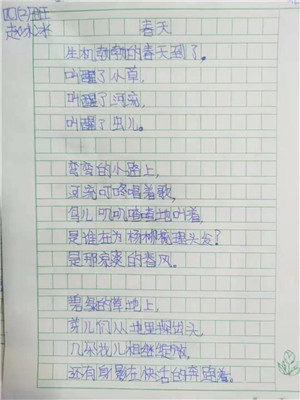 四(3)班
赵冰冰
春天
生机勃勃的春天到了。
叫醒了小草,
叫醒了河流,
叫醒了虫儿。
弯弯的小路上,
河流叮咚唱着歌,
鸟儿叽叽喳喳地叫着,
是谁在为杨柳梳理头发?
是那凉爽的春风。
碧绿的草地上,
芽儿们从地里探出头,
几朵花儿相继绽放,
还有身影在快活的奔跑着。